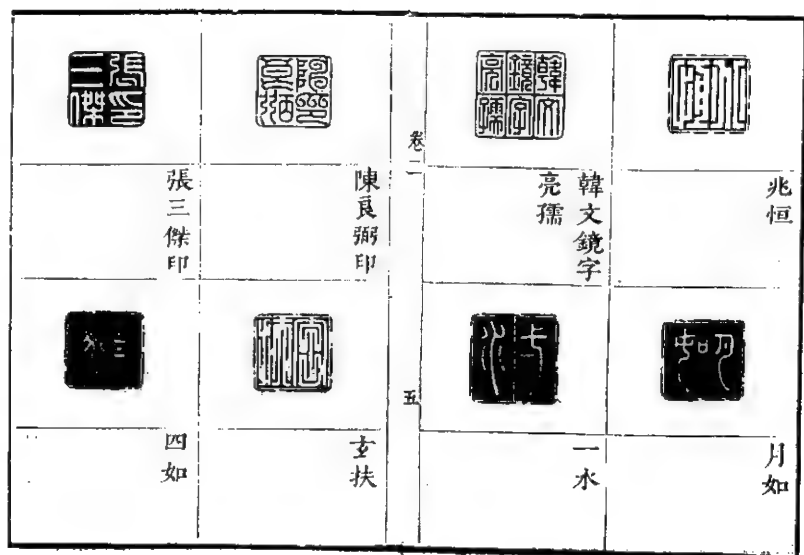 兆恒
韓文鏡字
亮孺
月如
一水
卷二
五
陳良弼印
張三傑印
玄扶
四如